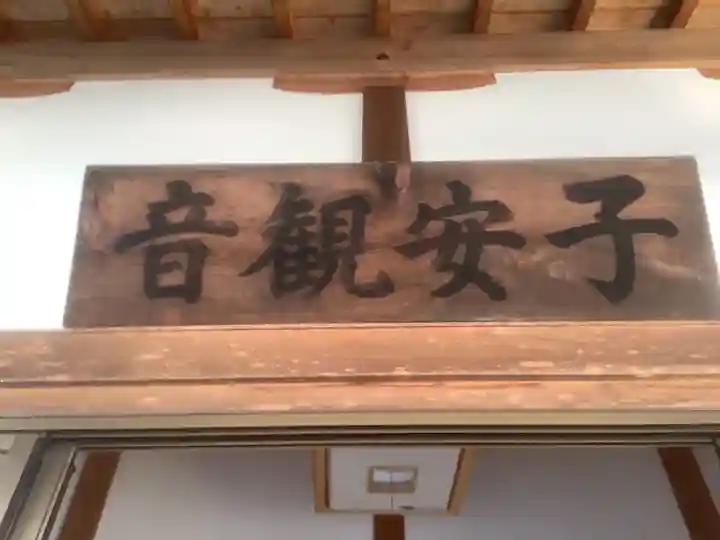 子安観音